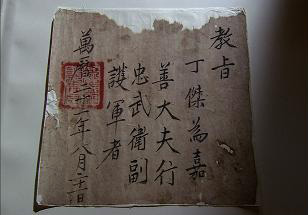 教旨
丁傑為嘉
善大夫行
忠武衛副
護軍者
萬曆十一年八月日